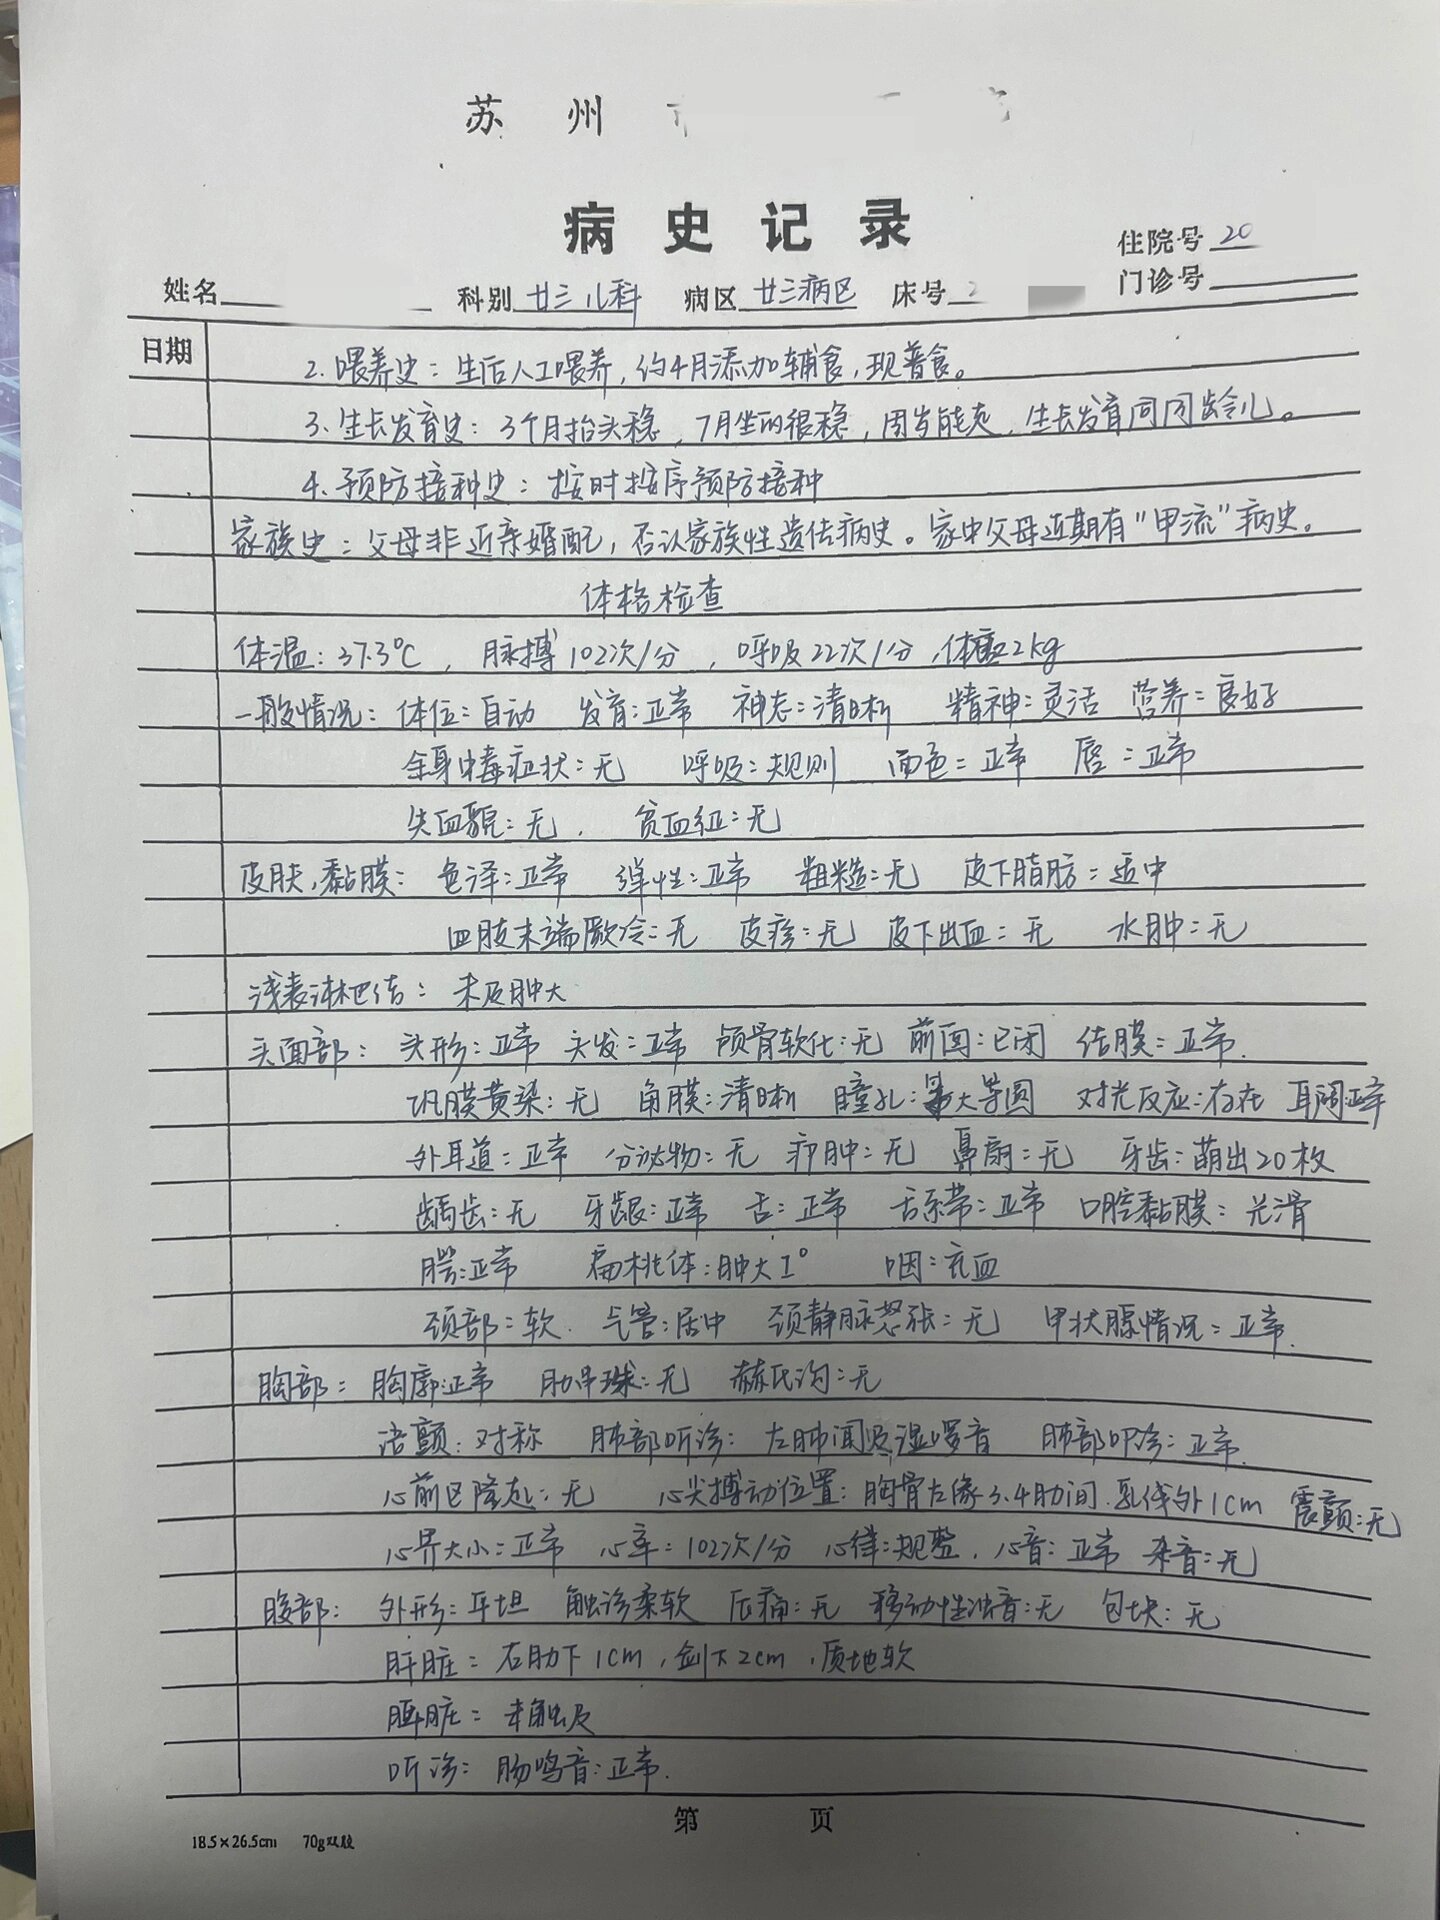 苏 州
病 史 记 录
住院号 20
姓名 科别 廿三儿科 病区 廿三病区 床号 门诊号
日期
2. 喂养史：生后人工喂养，约4月添加辅食，现普食。
3. 生长发育史：3个月抬头稳，7月坐的很稳，周岁能走，生长发育同同龄儿。
4. 预防接种史：按时按序预防接种
家族史：父母非近亲婚配，否认家族性遗传病史。家中父母近期有"甲流"病史。
体格检查
体温：37.3℃，脉搏102次/分，呼吸22次/分，体重 2kg
一般情况：体位：自动 发育：正常 神志：清晰 精神：灵活 营养：良好
全身中毒症状：无 呼吸：规则 面色：正常 唇：正常
失血貌：无． 贫血征：无
皮肤，黏膜：色泽：正常 弹性：正常 粗糙：无 皮下脂肪：适中
四肢末端厥冷：无 皮疹：无 皮下出血：无 水肿：无
浅表淋巴结：未及肿大
头面部：头形：正常 头发：正常 颅骨软化：无 前囟：已闭 结膜：正常．
巩膜黄染：无 角膜：清晰 瞳孔：等大等圆 对光反应：存在 耳阔正常
外耳道：正常 分泌物：无 疖肿：无 鼻扇：无 牙齿：萌出20枚
龋齿：无 牙龈：正常 舌：正常 舌系带：正常 口腔黏膜：光滑
腭：正常 扁桃体：肿大I° 咽：充血
颈部：软． 气管：居中 颈静脉怒张：无 甲状腺情况：正常．
胸部：胸廓：正常 肋串珠：无 赫氏沟：无
语颤：对称 肺部听诊：左肺闻及湿啰音 肺部叩诊：正常．
心前区隆起：无 心尖搏动位置：胸骨左缘3.4肋间．乳线外1cm 震颤：无
心界大小：正常 心率：102次/分 心律：规整． 心音：正常 杂音：无
腹部：外形：平坦 触诊柔软 压痛：无 移动性浊音：无 包块：无
肝脏：右肋下1cm，剑下2cm，质地软
脾脏：未触及
听诊：肠鸣音：正常．
第 页
18.5×26.5cm 70g双胶